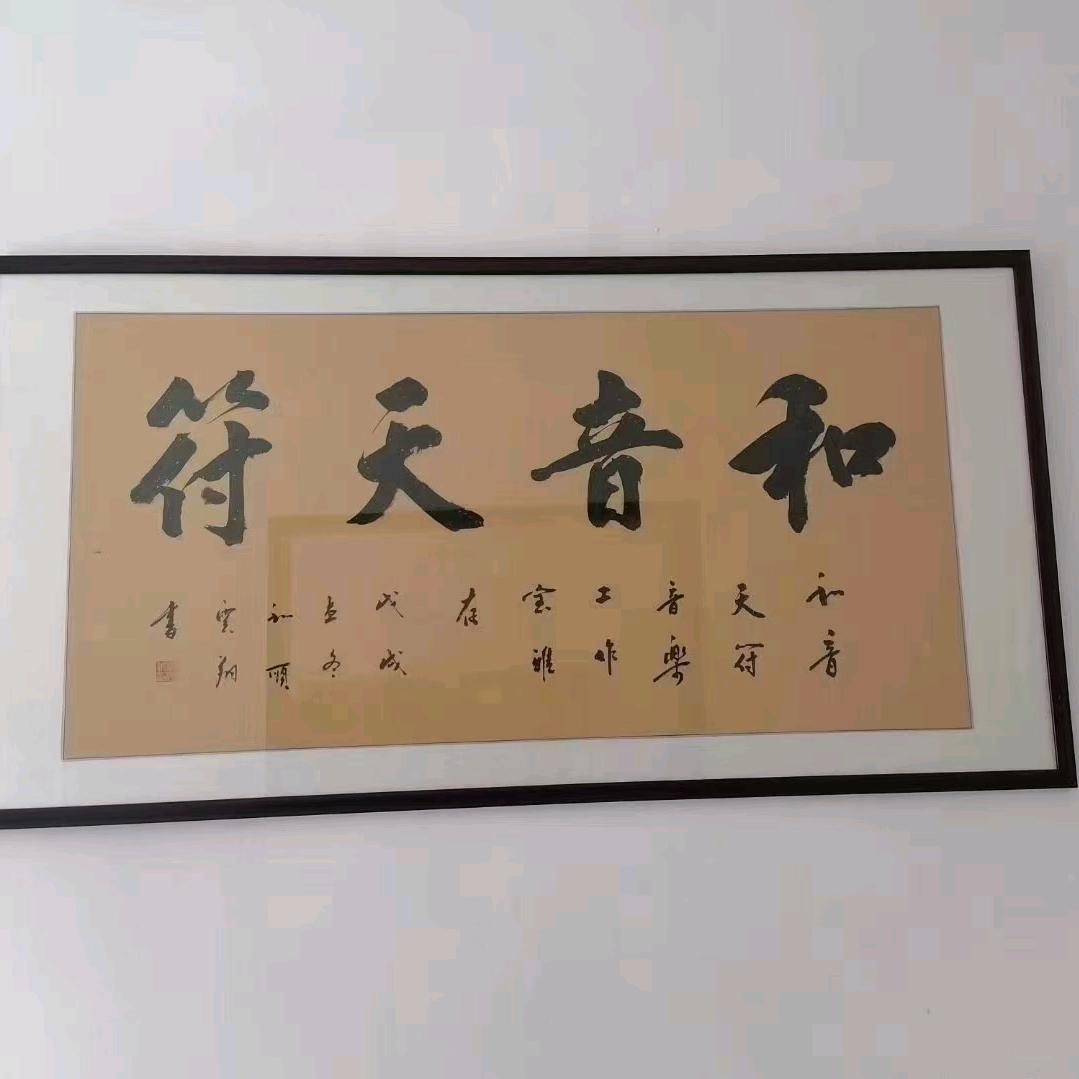 和音天符
和音
天符
音樂
工作
室雅
存
戊戌
孟冬
和順
雲翔
書